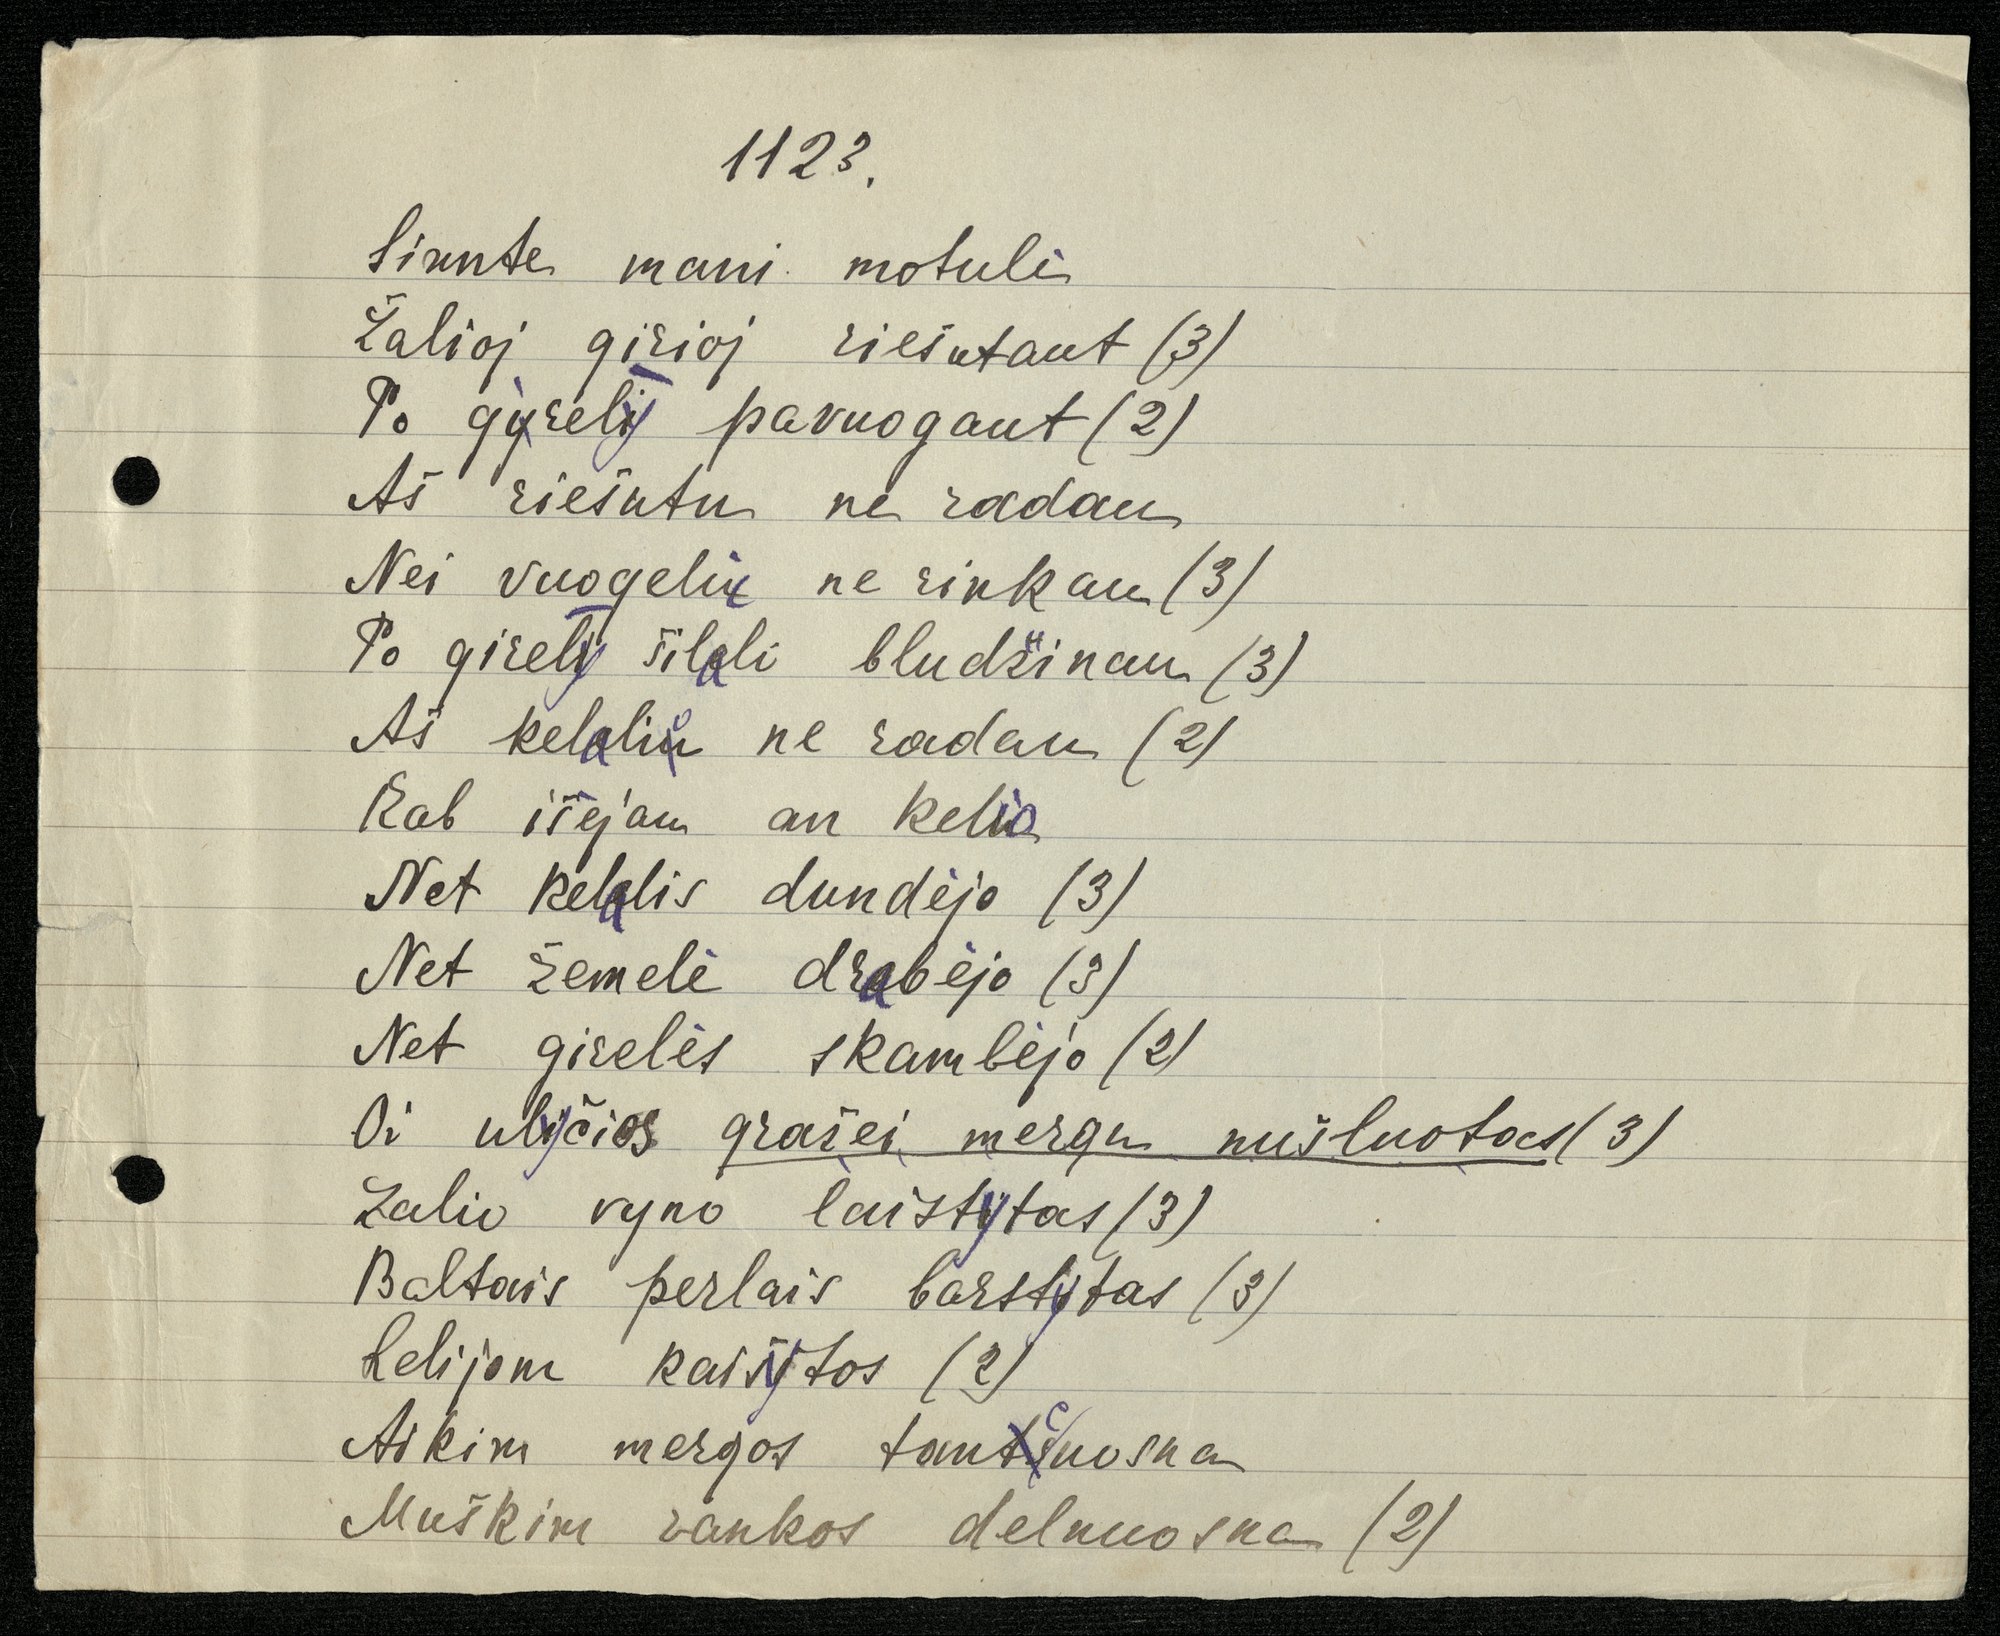 1123.
Siunte mani motuli
Žalioj girioj riešutaut (3)
Po gyrely pavuogaut (2)
Aš riešutu ne radau
Nei vuogeliu ne rinkau (3)
Po girely šilali bludžinau (3)
Aš kelaliu ne radau (2)
Kab išėjau an kelio
Net kelalis dundėjo (3)
Net žemelė drabėjo (3)
Net girelės skambėjo (2)
Oi ulyčios gražei mergu nušluotas (3)
Žalio vyno laistytas (3)
Baltais perlais barstytas (3)
Lelijom kaišytos (2)
Aikim mergos tancuosna
Muškim rankos delnuosna (2)